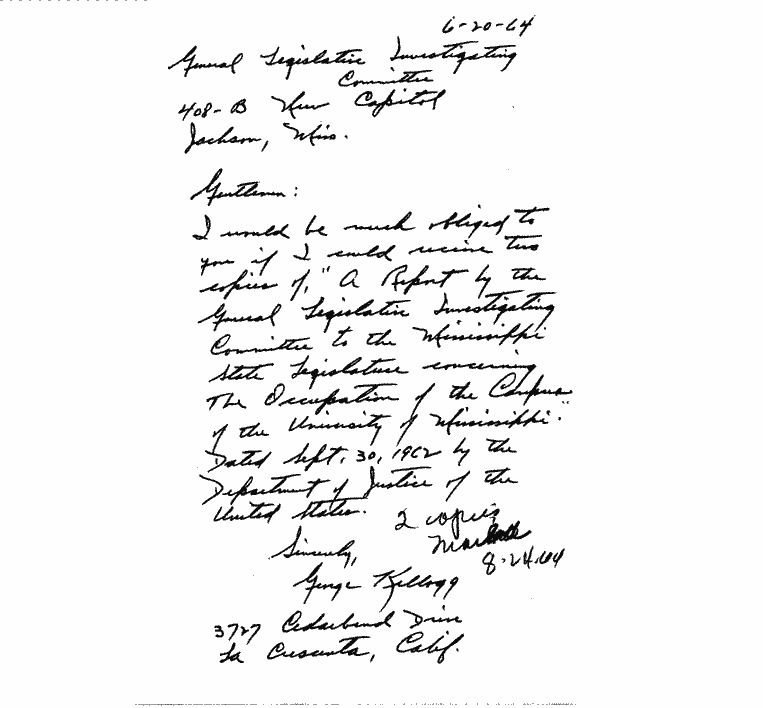 6-20-64
General Legislative Investigating
Committee
408-B New Capitol
Jackson, Miss.
Gentlemen:
I would be much obliged to
you if I could receive two
copies of, "A Report by the
General Legislative Investigating
Committee to the Mississippi
State Legislature concerning
The Occupation of the Campus
of the University of Mississippi."
Dated Sept. 30, 1962 by the
Department of Justice of the
United States.
2 copies
8-24-64
Sincerely,
George Kellogg
3727 Cedarbend Drive
La Crescenta, Calif.